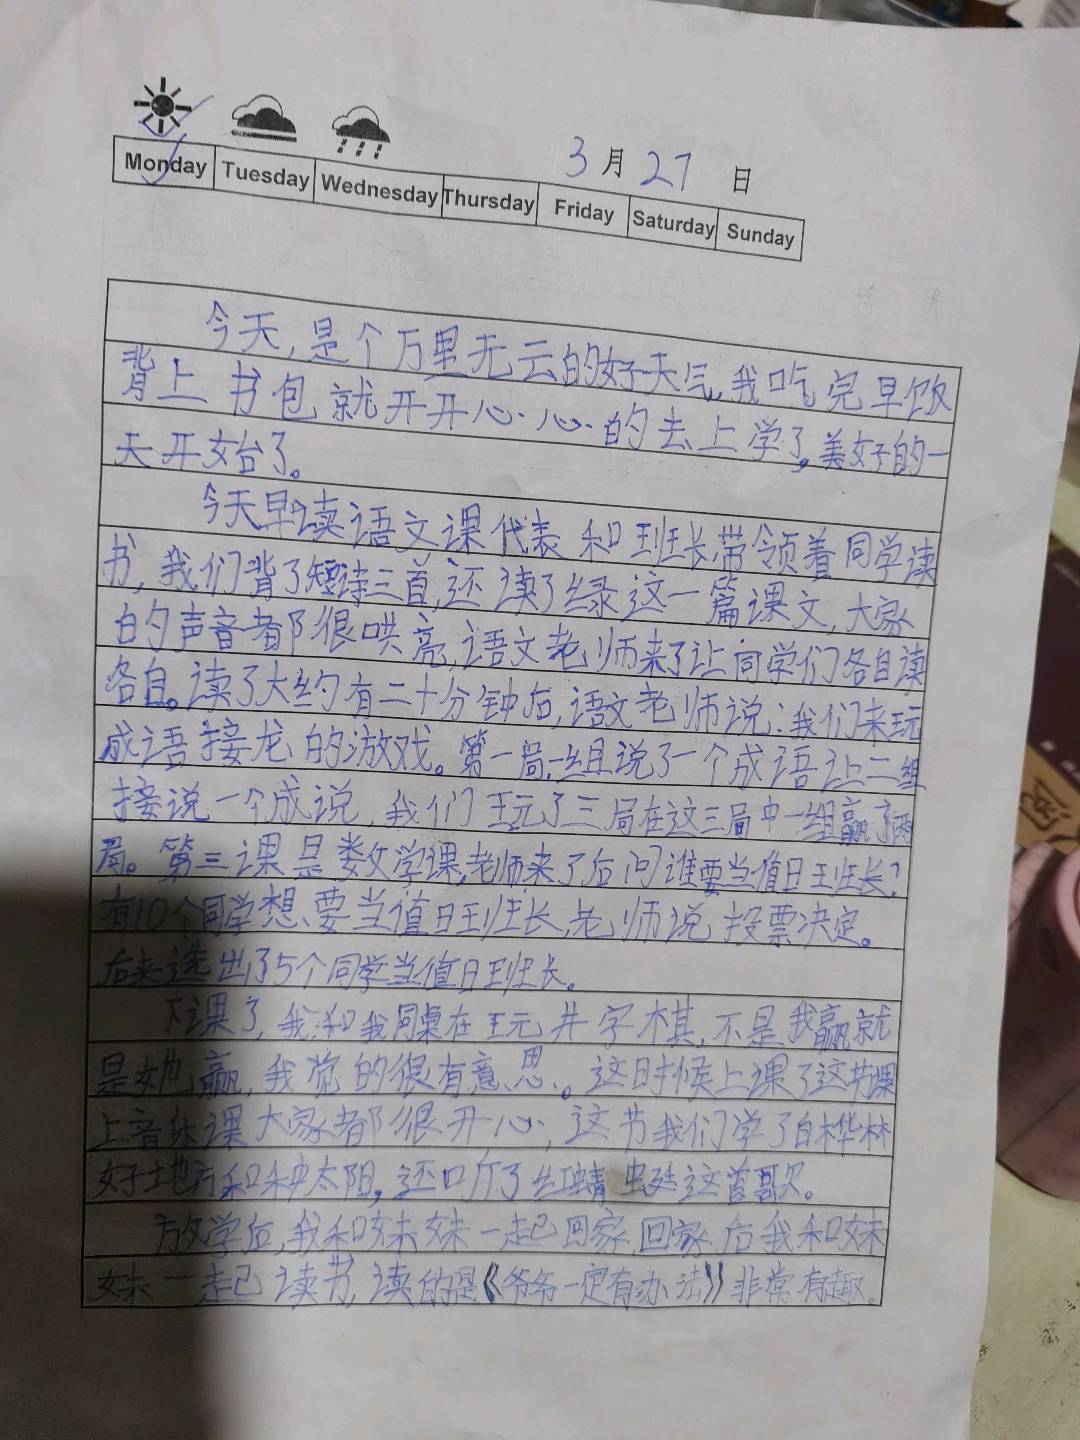 3月27日
Monday Tuesday Wednesday Thursday Friday Saturday Sunday
今天,是个万里无云的好天气,我吃完早饭
背上书包就开开心心的去上学了。美好的一
天开始了。
今天早读语文课代表和班长带领着同学读
书,我们背了短诗三首,还读了绿这一篇课文,大家
的声音都很哄亮,语文老师来了让同学们各自读
各自。读了大约有二十分钟后,语文老师说:我们来玩
成语接龙的游戏。第一局一组说了一个成语让二组
接说一个成说,我们玩了三局在这三局中一组赢了两
局。第三课是数文学课,老师来了后问谁要当值日班长?
有10个同学想要当值日班长,老师说投票决定。
后来选出了5个同学当值日班长。
下课了,我和我同桌在玩井字棋,不是我赢就
是她赢,我觉的很有意思。这时候上课了这节课
上音乐课大家都很开心,这节我们学了白桦林
好地方和种太阳,还听了红蜻蜓这首歌。
放学后,我和妹妹一起回家,回家后我和妹
妹一起读书,读的是《爷爷一定有办法》非常有趣。